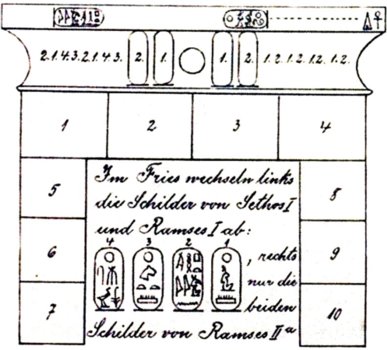 2.1.4.3.2.1.4.3. 2. 1. 1. 2. 1.2.1.2.1.2.1.2.
1 2 3 4
5 8
Im Fries wechseln links
die Schilder von Sethos I
und Ramses I ab:
4 3 2 1
6 9
, rechts
nur die
beiden
7 10
Schilder von Ramses II a